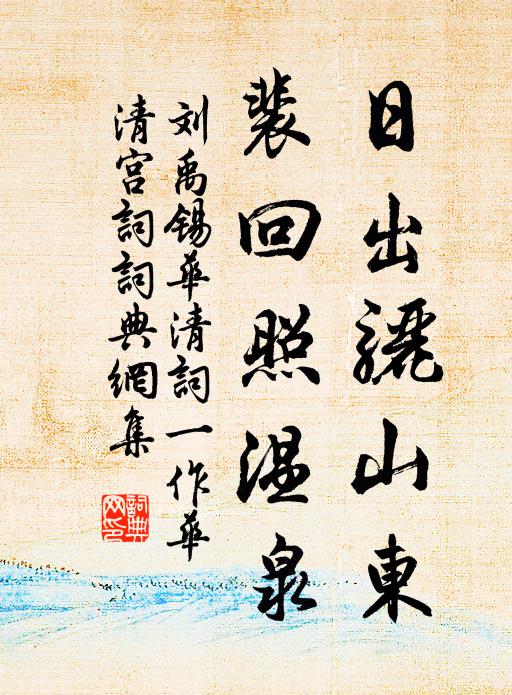 日出驪山東
裴回照温泉
刘禹锡華清詞一作華
清宫詞詞典網集
詞典
网印